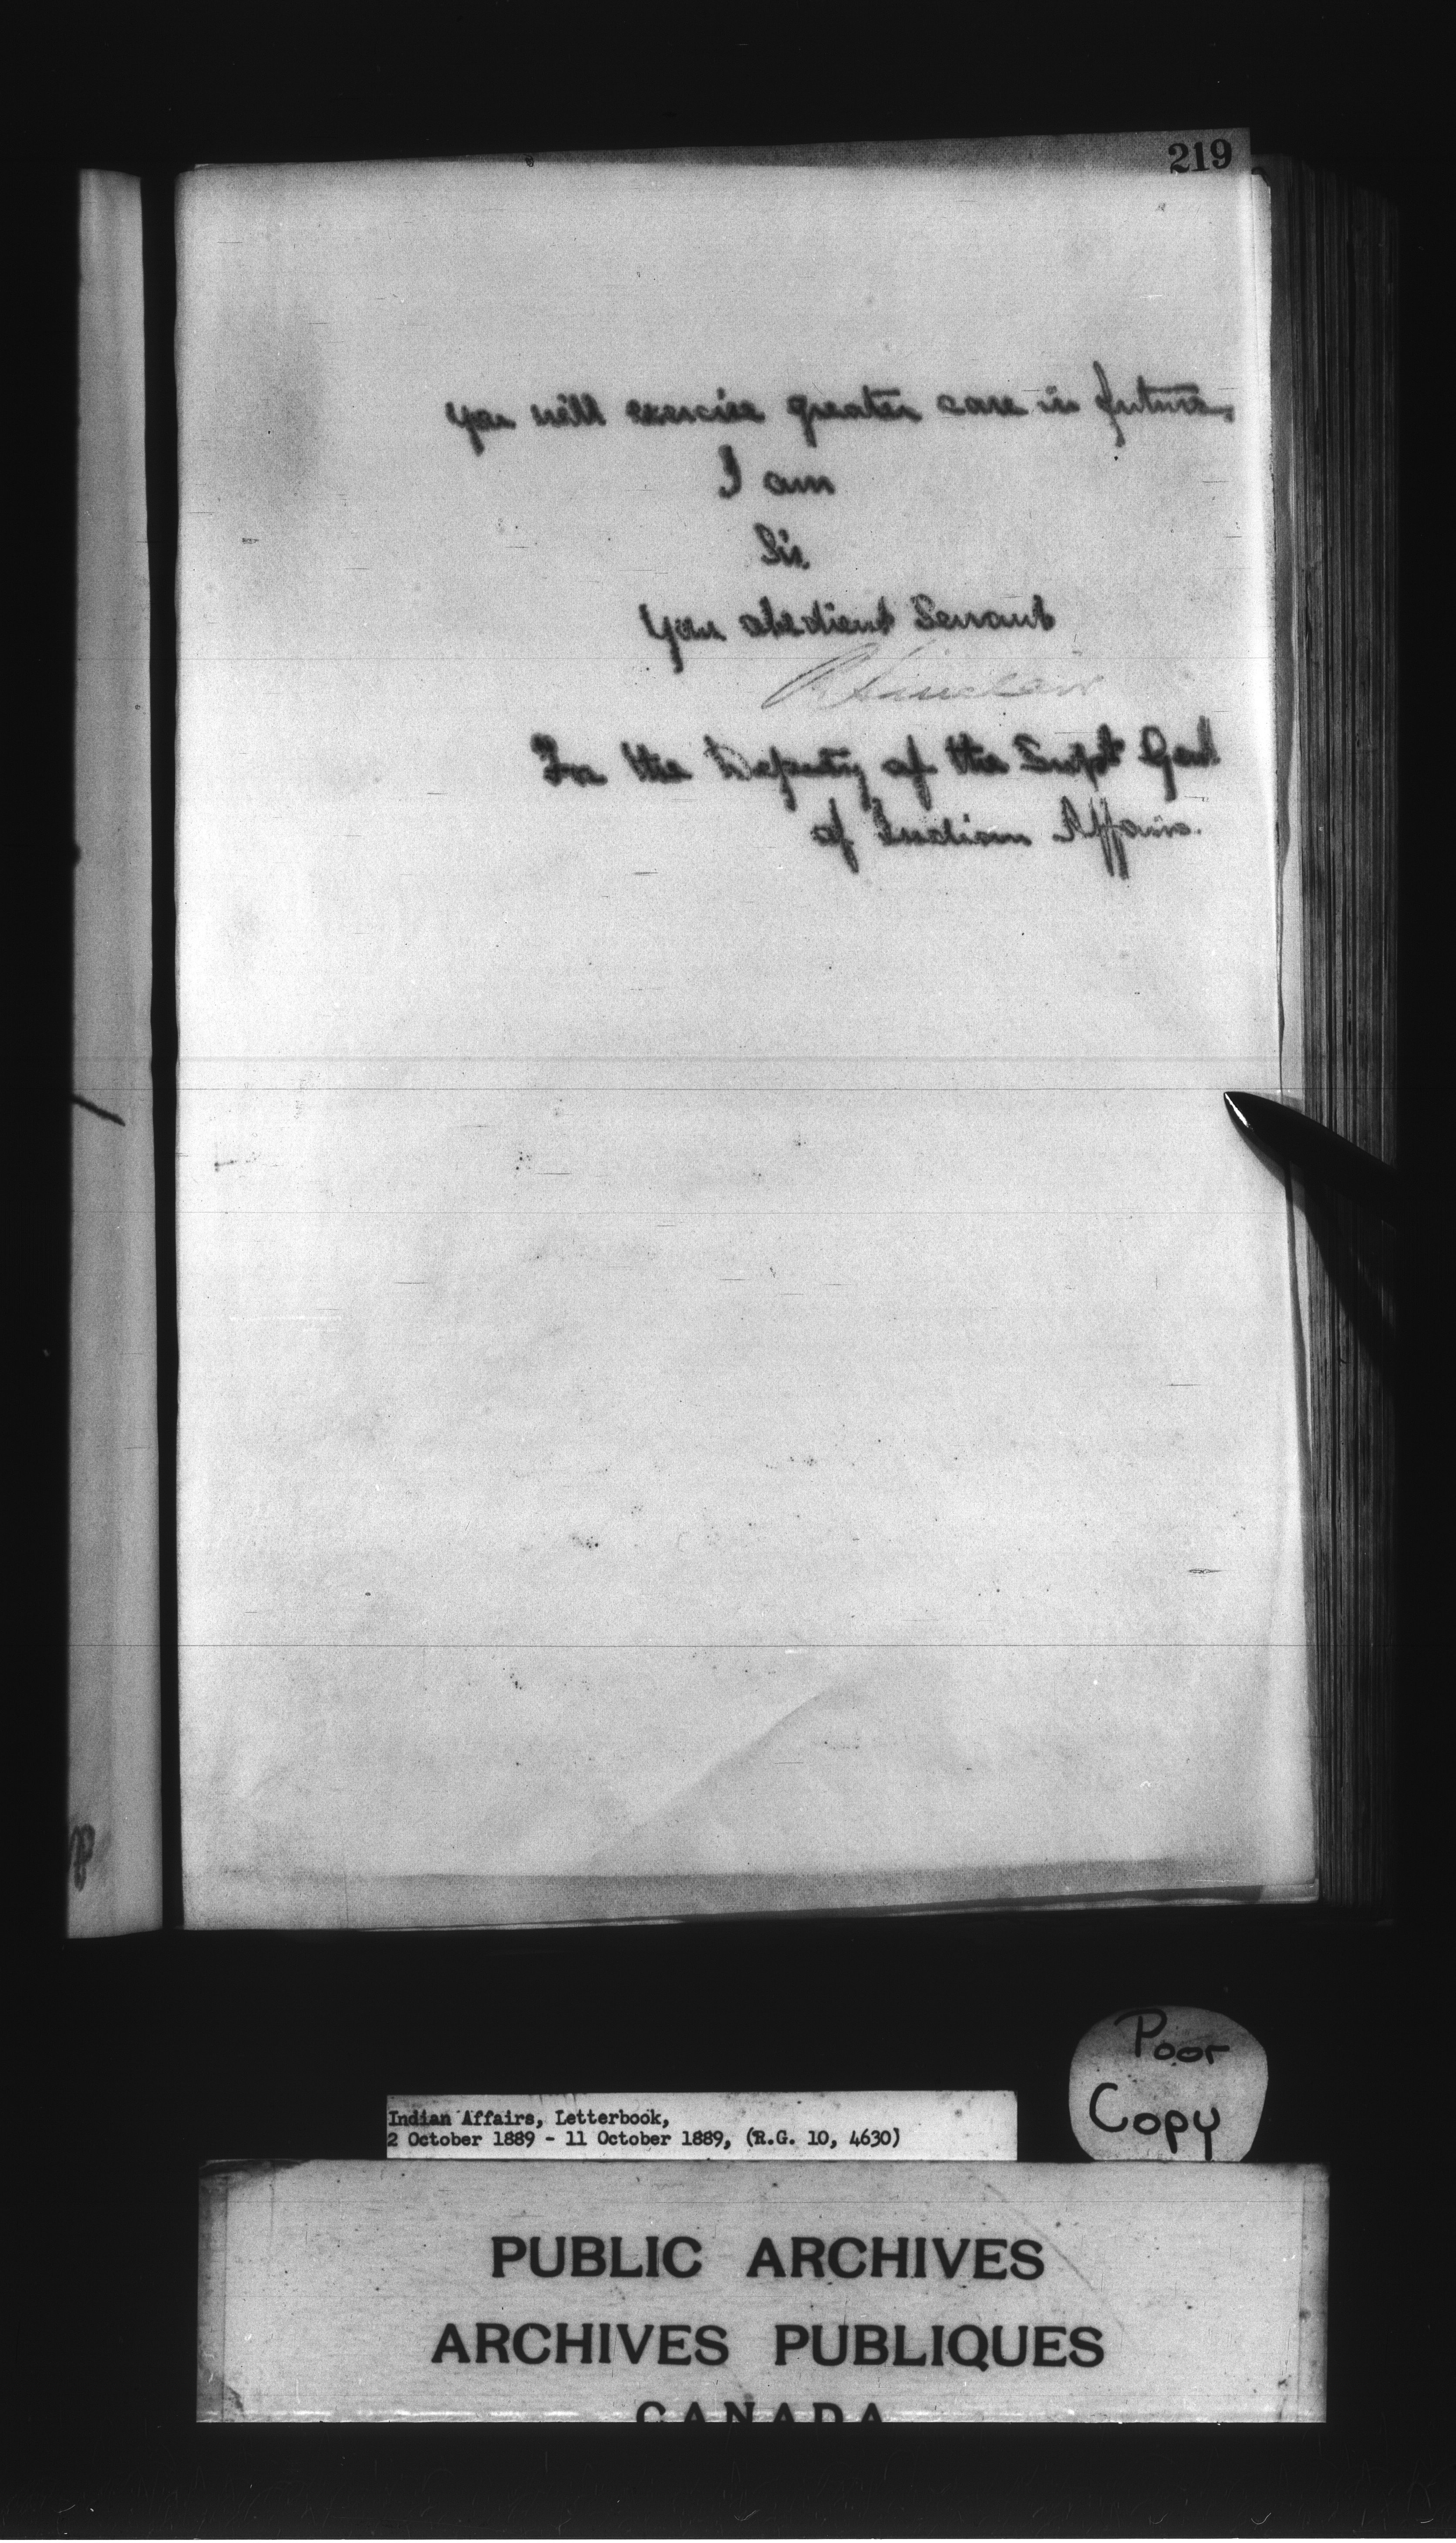 219
you will exercise greater care in future.
I am
Sir
Your obedient Servant
R Sinclair
For the Deputy of the Supt Genl
of Indian Affairs.
Poor
Copy
Indian Affairs, Letterbook,
2 October 1889 - 11 October 1889, (R.G. 10, 4630)
PUBLIC ARCHIVES
ARCHIVES PUBLIQUES
CANADA